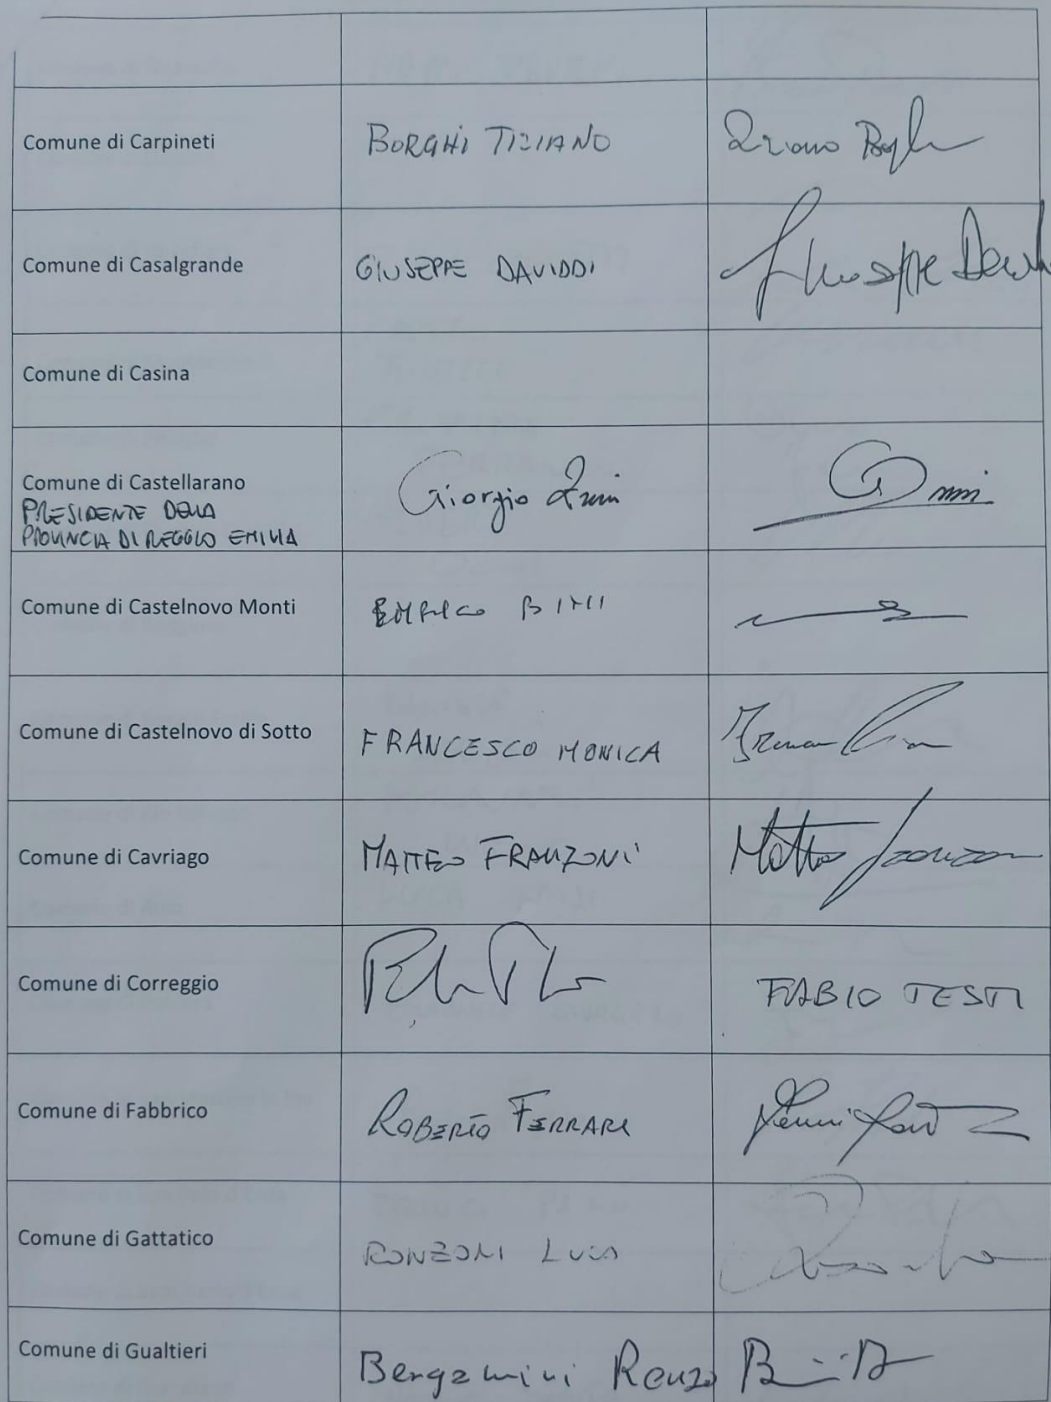 Comune di Carpineti
BORGHI TIZIANO
Comune di Casalgrande
GIUSEPPE DAVIDDI
Giuseppe
Comune di Casina
Comune di Castellarano
PRESIDENTE DELLA
PROVINCIA DI REGGIO EMILIA
Giorgio Zanni
Comune di Castelnovo Monti
ENRICO BINI
Comune di Castelnovo di Sotto
FRANCESCO MONICA
Comune di Cavriago
MATTEO FRANZONI
Matteo Franzoni
Comune di Correggio
FABIO TESTI
Comune di Fabbrico
ROBERTO FERRARI
Comune di Gattatico
RONZONI LUCA
Comune di Gualtieri
Bergamini Renzo